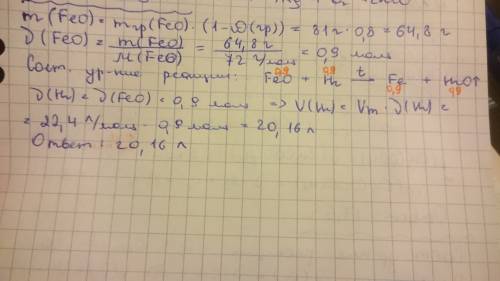 m(FeO) = mгр(FeO) · (1-ω(гр)) = 81г · 0,8 = 64,8 г
ν(FeO) = m(FeO)/M(FeO) = 64,8 г/72 г/моль = 0,9 моль
Сост. ур-ние реакции: FeO + H₂ t→ Fe + H₂O↑
0,9 0,9 0,9 0,9
ν(H₂) = ν(FeO) = 0,9 моль => V(H₂) = Vm · ν(H₂) =
= 22,4 л/моль · 0,9 моль = 20,16 л
Ответ: 20,16 л